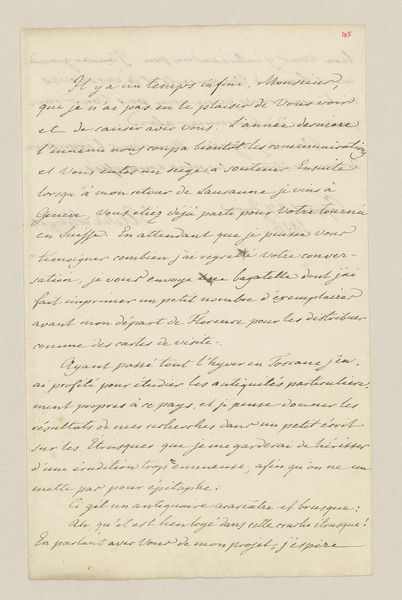 45
Il y a un temps infini, Monsieur,
que je n'ai pas eu le plaisir de Vous voir
et de causer avec Vous. L'année dernière
l'ennemi nous coupa bientot les communications
et Vous eutes un siège à soutenir. Ensuite
lorsqu'à mon retour de Lausanne je vins à
Genève Vous étiez déjà parti pour Votre tournée
en Suisse. En attendant que je puisse Vous
temoigner combien j'ai regretté Votre conver-
sation, je vous envoye une bagatelle dont j'ai
fait imprimer un petit nombre d'éxemplaires
avant mon départ de Florence pour les distribuer
comme des cartes de visite.
Ayant passé tout l'hyver en Toscane j'en
ai profité pour étudier les antiquités particulière-
ment propres à ce pays, et je pense donner les
résultats de mes recherches dans un petit écrit
sur les Etrusques que je me garderai de hérisser
d'une érudition trop ennuieuse, afin qu'on ne me
mette pas pour épitaphe:
Ci gît un antiquaire acariâtre et brusque:
Ah, qu'il est bien logé dans cette cruche étrusque!
En parlant avec Vous de mon projet, j'espère